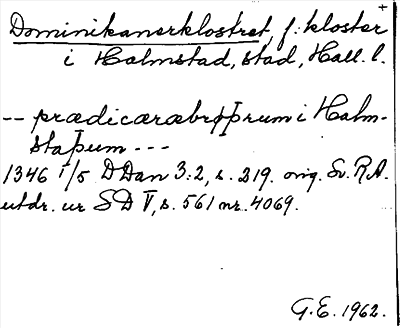 Dominikanerklostret, f. kloster +
i Halmstad, stad, Hall. l.
-- prædicarabrøþrum i Halm-
staþum ---
1346 1/5 DDan 3:2, s. 219. orig. Sv. R.A.
utdr. ur SD V, s. 561 nr. 4069.
G.E. 1962.